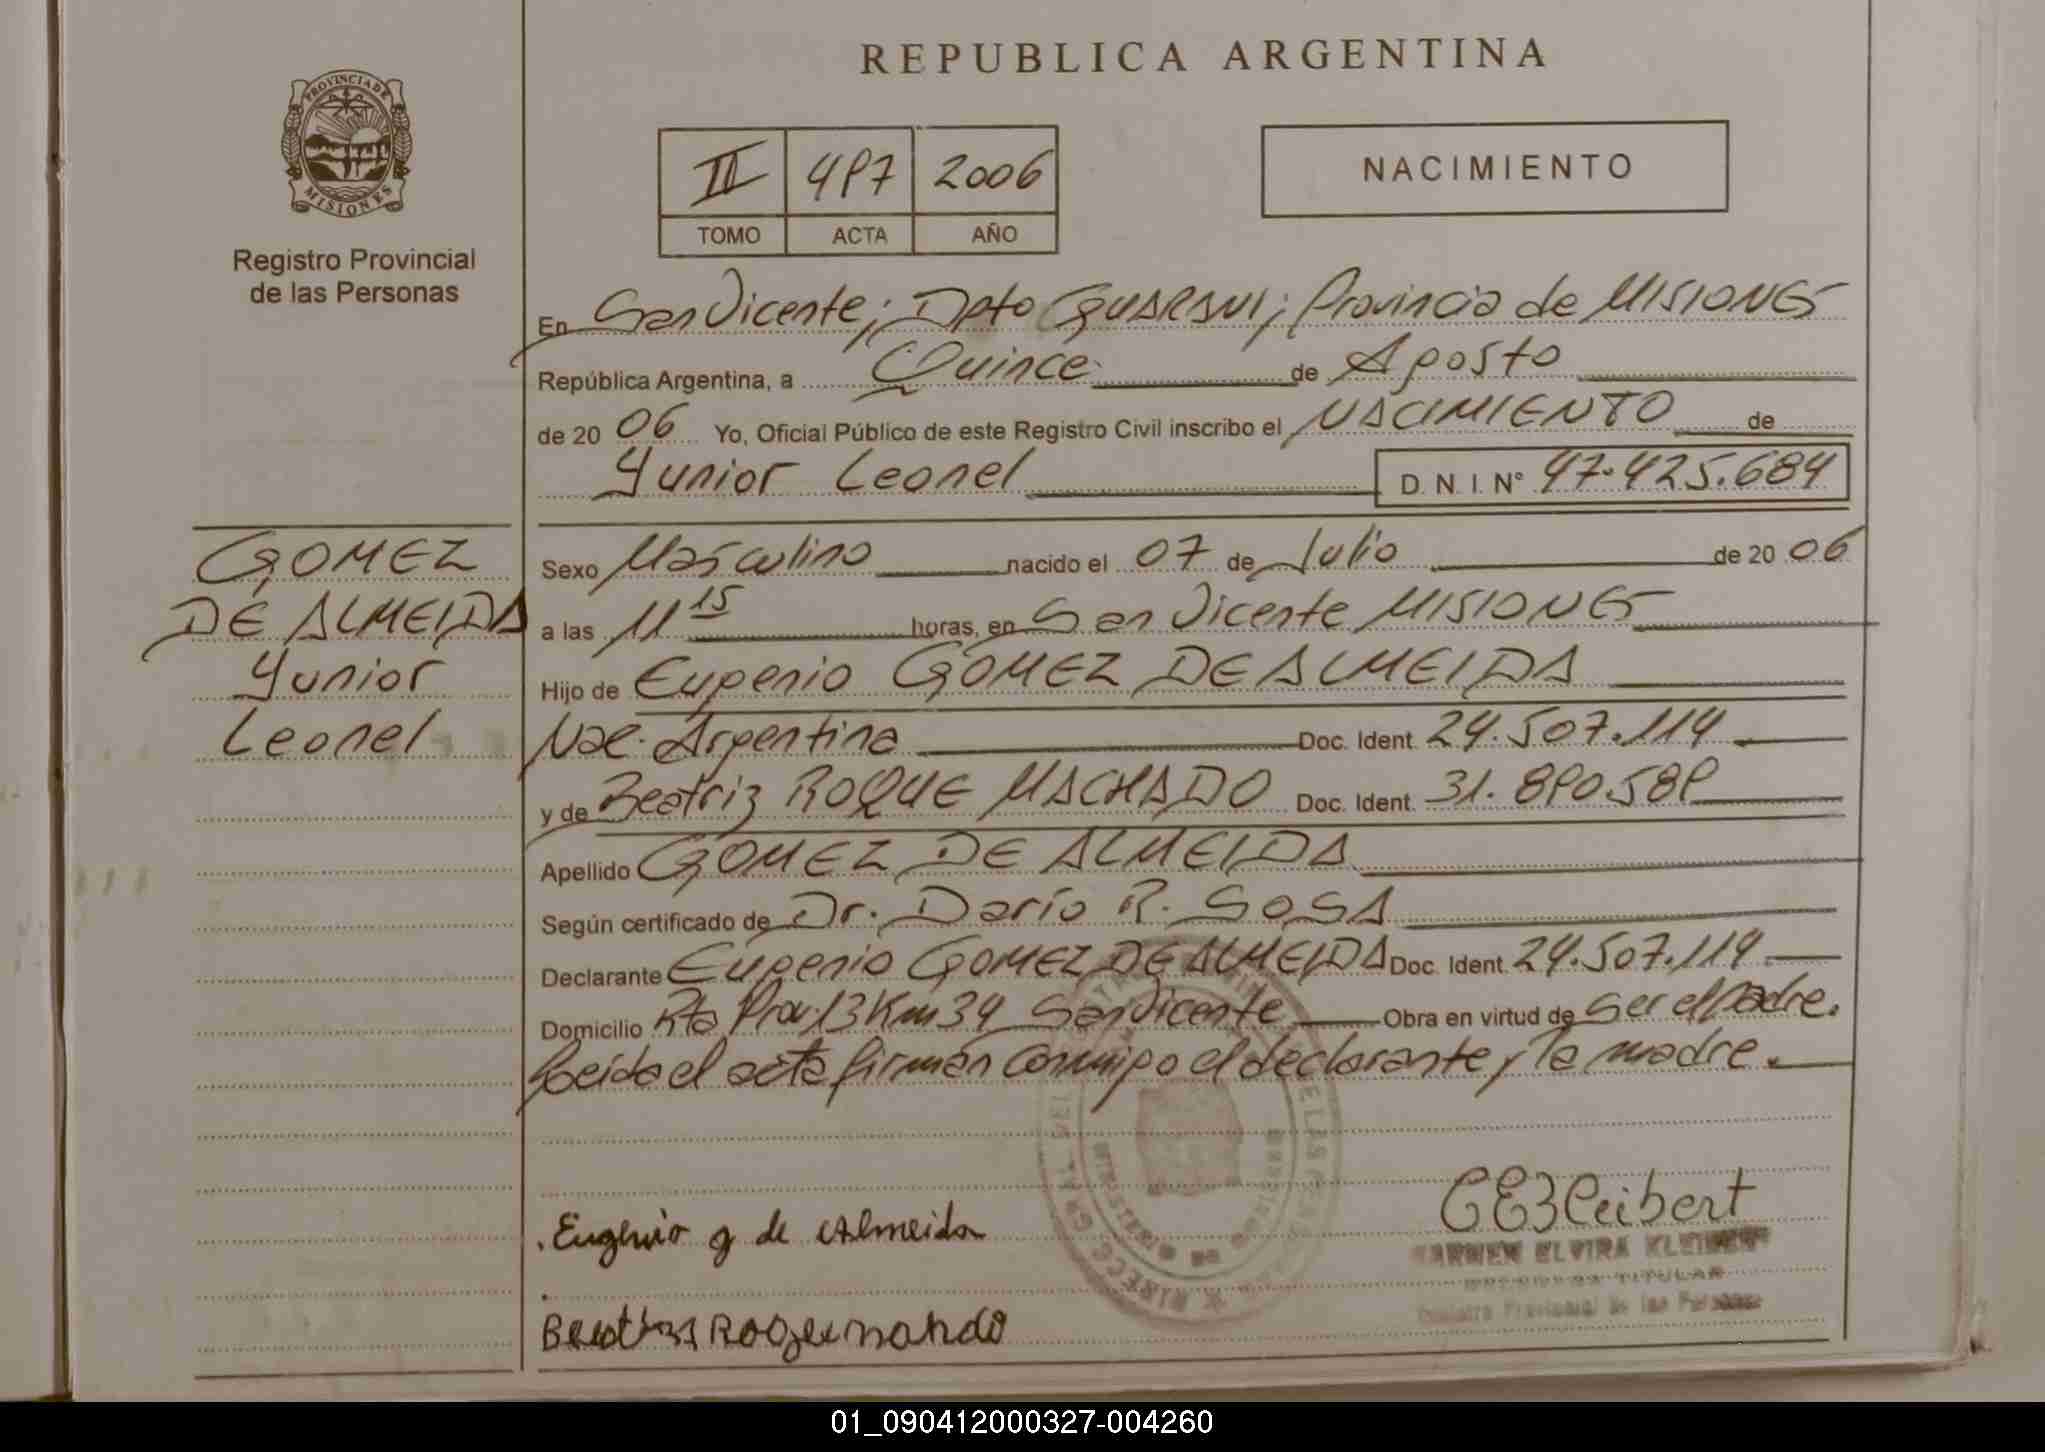 REPUBLICA ARGENTINA
PROVINCIA DE
MISIONES
Registro Provincial
de las Personas
II 497 2006
TOMO ACTA AÑO
NACIMIENTO
En San Vicente; Dpto GUARANI; Provincia de MISIONES
República Argentina, a Quince de Agosto
de 20 06 Yo, Oficial Público de este Registro Civil inscribo el NACIMIENTO de
Yunior Leonel D. N. I. N° 47.425.684
GOMEZ
DE ALMEIDA
Yunior
Leonel
Sexo Masculino nacido el 07 de Julio de 20 06
a las 11 15 horas, en San Vicente MISIONES
Hijo de Eugenio GOMEZ DE ALMEIDA
Nac. Argentina Doc. Ident. 24.507.114
y de Beatriz ROQUE MACHADO Doc. Ident. 31.890.589
Apellido GOMEZ DE ALMEIDA
Según certificado de Dr. Darío R. SOSA
Declarante Eugenio GOMEZ DE ALMEIDA Doc. Ident. 24.507.114
Domicilio Rta Prov. 13 Km 34 San Vicente Obra en virtud de ser el padre.
Leída el acta firman conmigo el declarante y la madre.
Eugenio g de Almeida
CEKleibert
CARMEN ELVIRA KLEIBERT
TITULAR
Registro Provincial de las Personas
01_090412000327-004260